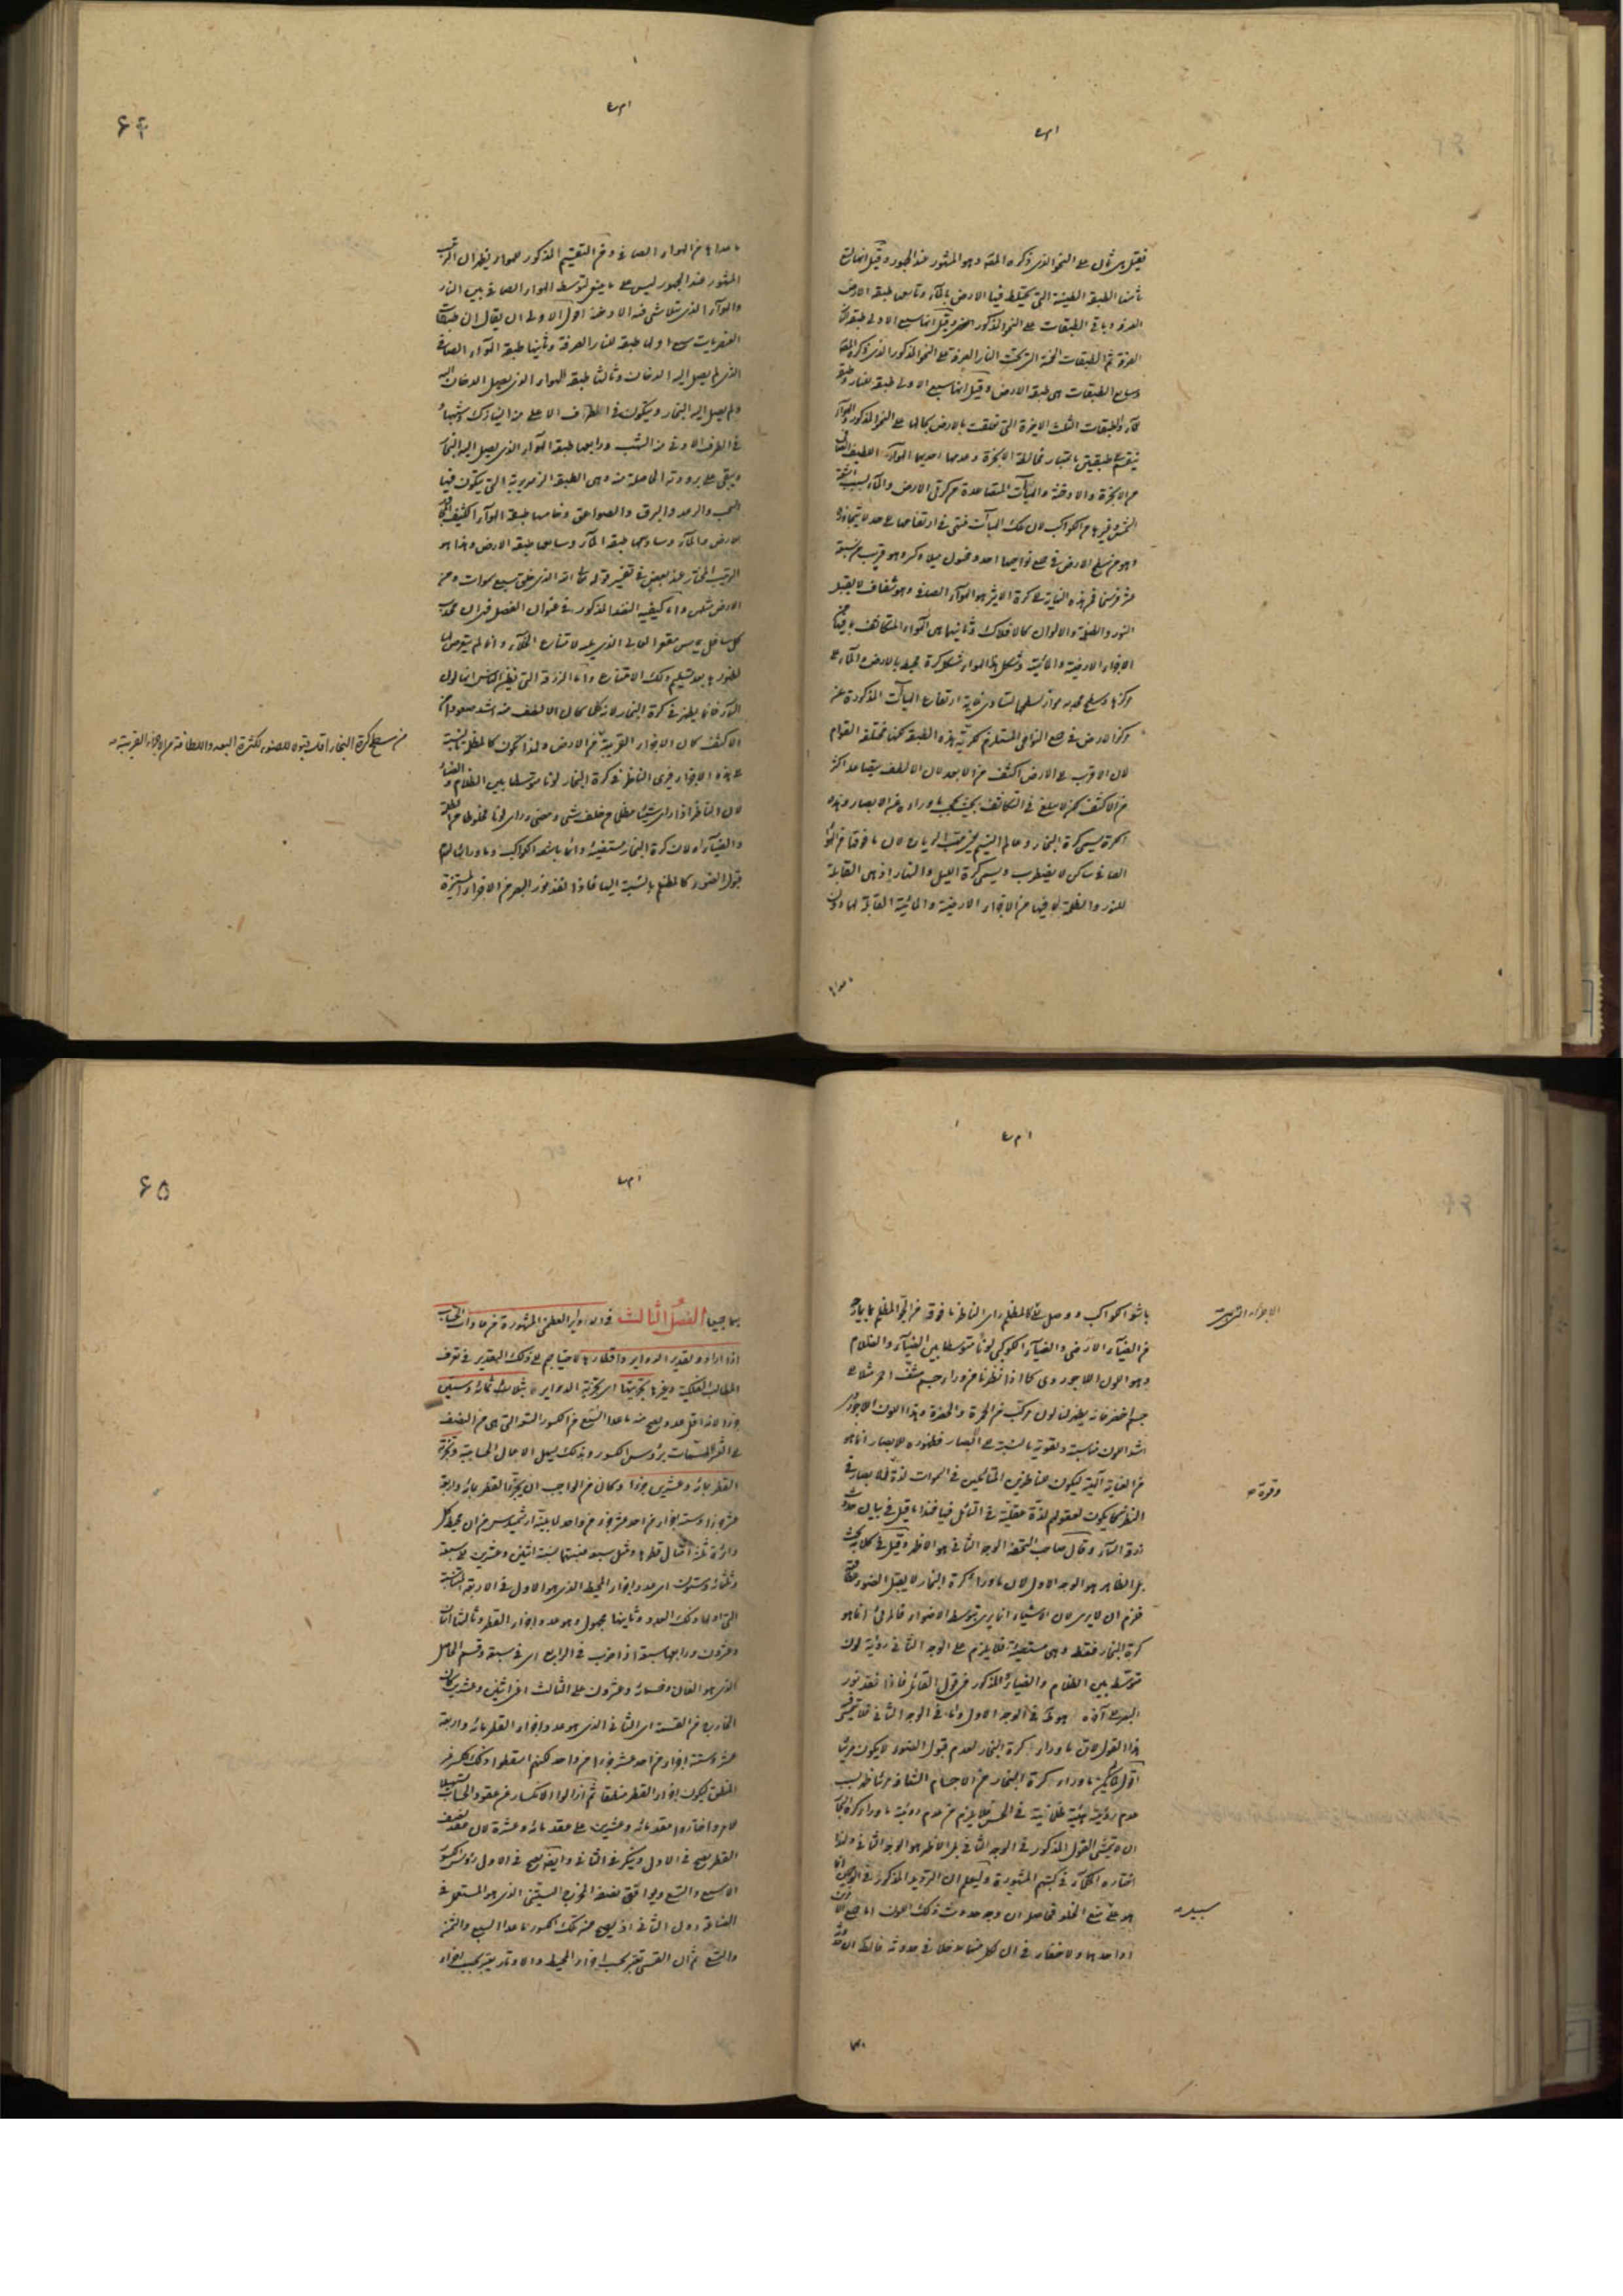 فقيل هي ثمان على النحو الذي ذكره المص وهو المشهور عند الجمهور وقيل انها تسع
ثامنها الطبقة الطينية التي يختلط فيها الارض بالماء وتاسعها طبقة الارض
الصرفة وباقي الطبقات على النحو المذكور وقيل انها سبع الاولى طبقة النار
الصرفة ثم الطبقات الخمسة التي تحت النار الصرفة على النحو المذكور الذي ذكره المص
وسابع الطبقات هي طبقة الارض وقيل انها سبع الاولى طبقة للنار وطبقة
للماء والطبقات الثلث الاخيرة التي تعلقت بالارض بحالها على النحو المذكور والهواء
ينقسم على طبقتين باعتبار مخالطة الابخرة وعدمها احديهما الهواء اللطيف الصافي
من الابخرة والادخنة والهيآت المتصاعدة من كرتي الارض والماء بسبب اشعة
الشمس وغيرها من الكواكب لان تلك الهيآت تنتهي في ارتفاعها الى حد لا يتجاوزه
وهو من سطح الارض في جميع نواحيها احد وخمسون ميلا وكسر وهو قريب من سبعة
عشر فرسخا فمن هذه النهاية الى كرة الاثير هو الهواء الصافي وهو شفاف لا يقبل
النور والظلمة والالوان كالافلاك وثانيهما هي الهواء المتكاثف بما فيها من
الاجزاء الارضية والمائية وشكل هذا الهواء شكل كرة محيطة بالارض والماء على
مركزها وسطح محدبه مواز لسطحها لتساوي غاية ارتفاع الهيآت المذكورة عن
مركز الارض في جميع النواحي المستلزم لكرية هذه الطبقة لكنها مختلفة القوام
لان الاقرب الى الارض اكثف من الابعد لان الالطف يتصاعد اكثر
من الاكثف لكن لا يبلغ في التكاثف بحيث يحجب ما وراءه عن الابصار وهذه
الكرة يسمى كرة البخار وعالم النسيم يعني مهب الرياح لان ما فوقها من الهواء
الصافي ساكن لا يضطرب ويسمى كرة الليل والنهار اذ هي القابلة
للنور والظلمة بما فيها من الاجزاء الارضية والمائية القابلة لهما دون
ما عداها من الهواء الصافي ومن التقسيم المذكور للهواء يظهر ان الترتيب
المشهور عند الجمهور ليس على ما ينبغي لتوسط الهواء الصافي بين النار
والهواء الذي يتلاشى فيه الادخنة اقول الاولى ان يقال ان طبقات
العنصريات سبع اولها طبقة للنار الصرفة وثانيها طبقة الهواء الصافي
الذي لم يصل اليه الدخان وثالثها طبقة الهواء الذي يصل الدخان اليه
ولم يصل اليه البخار ويتكون في الطرف الاعلى منه النيازك واشباهها
في الطرف الادنى منه الشهب ورابعها طبقة الهواء الذي يصل اليه البخار
ويبقى على برودته الحاصلة منه وهي الطبقة الزمهريرية التي يتكون فيها
السحب والرعد والبرق والصواعق وخامسها طبقة الهواء الكثيف المجاور
للارض والماء وسادسها طبقة الماء وسابعها طبقة الارض وهذا هو
الترتيب المختار عند بعض في تفسير قوله تعالى الله الذي خلق سبع سموات ومن
الارض مثلهن واما كيفية النضد المذكور في عنوان الفصل فهي ان محدب
كل سافل يماس مقعر العالي الذي يليه لامتناع الخلاء وانما لم يتعرض لها
لظهورها بعد تسليم ذلك الامتناع واما الزرقة التي يظن الناس انها لون
السماء فانها يظهر في كرة البخار لانه لما كان الالطف منه اشد صعودا من
الاكثف كان الاجزاء القريبة من سطح كرة البخار اقل قبولا للضوء لكثرة البعد واللطافة من الاجزاء القريبة صح
من الارض ولهذا تكون كالمظلمة بالنسبة
الى هذه الاجزاء فيرى الناظر في كرة البخار لونا متوسطا بين الظلام والضياء
لان الناظر اذا رأى شيئا مظلما من خلف شئ مضئ رأى لونا مخلوطا من الظلمة
والضياء او لان كرة البخار مستضيئة دائما باشعة الكواكب وما وراءها لعدم
قبول الضوء كالمظلم بالنسبة اليها فاذا نفذ نور البصر من الاجزاء المستنيرة
باشعة الكواكب ووصل الى كالمظلم رأى الناظر ما فوقه من الجو المظلم بما يمازجه
الاجزاء
من الضياء الارضي والضياء الكوكبي لونا متوسطا بين الضياء والظلام
وهو اللون اللاجوردي كما اذا نظرنا من وراء جسم مشف احمر مثلا الى
جسم اخضر فانه يظهر لنا لون مركب من الحمرة والخضرة وهذا اللون اللاجوردي
اشد الالوان مناسبة وتقوية بالنسبة الى الابصار فظهوره للابصار انما هو
من العناية الالهية ليكون للناظرين المتأملين في السموات لذة للابصار في
وقرة صح
النظر كما يكون لعقولهم لذة عقلية في التأمل فيها هذا ما قيل في بيان حدوث
زرقة السماء وقال صاحب التحفة الوجه الثاني هو الاظهر وقيل في كلامه بحث
بل الظاهر هو الوجه الاول لان ما وراء كرة البخار لا يقبل الضوء
فلزم ان لا يرى لان الاشياء انما يرى بتوسط الاضواء فالمرئي انما هو
كرة البخار فقط وهي مستضيئة فلا يلزم على الوجه الثاني رؤية لون
متوسط بين الظلام والضياء المذكور من قول القائل فاذا نفذ نور
البصر الى آخره هو في الوجه الاول واما في الوجه الثاني فلا يتمشى
هذا القول لان ما وراء كرة البخار لعدم قبول الضوء لا يكون مرئيا
اقول لما لم يكن ما وراء كرة البخار من الاجسام الشفافة مرئيا ظهر بسبب
عدم رؤيته هيئة ظلمانية في الحس فلا يلزم من عدم رؤية ما وراء كرة البخار
ان لا يتمشى القول المذكور في الوجه الثاني بل الاظهر هو الوجه الثاني ولذا
اختاره الحكماء في كتبهم المشهورة وليعلم ان الترديد المذكور في الوجهين
هو على سبيل منع الخلو فحاصله ان وجه حدوث ذلك اللون اما جميع الامرين
او احدهما ولا خفاء في ان لكل منهما مدخلا في حدوثه
بصاحبها الفصل الثالث في الدوائر العظمى المشهورة من عادات الحساب
اذا ارادوا تقدير الدوائر واقطارها لاحتياجهم الى ذلك التقدير في تعرف
المطالب الفلكية وغيرها تجزيتها اى تجزية الدوائر بثلاث ثمائة وستين
جزءا لانه اقل عدد يصح منه ما عدا السبع من الكسور التسعة التي هي من النصف
الى العشر المسمات برؤوس الكسور وبذلك يسهل الاعمال الحسابية وتجزية
القطر بمائة وعشرين جزءا وكان من الواجب ان يجزوا القطر بمائة واربعة
عشر جزءا وستة اجزاء من احد عشر جزء من واحد لما بينه ارشميدس من ان محيط كل
دائرة ثلثة امثال قطرها ومثل سبعه فنسبتهما نسبة اثنين وعشرين الى سبعة
وثلثمائة وستون اى عدد اجزاء المحيط الذي هو الاول في الاربعة المتناسبة
التي اولها ذلك العدد وثانيها مجهول وهو عدد اجزاء القطر وثالثها اثنان
وعشرون ورابعها سبعة اذا ضرب في الرابع اى في سبعة وقسم الحاصل
الذي هو الفان وخمسمائة وعشرون على الثالث اعني اثنين وعشرين كان
الخارج من القسمة اى الثاني الذي هو عدد اجزاء القطر مائة واربعة
عشر وستة اجزاء من احد عشر جزءا من واحد لكنهم اسقطوا ذلك الكسر
المنطق ليكون اجزاء القطر منطقا ثم ازالوا الانكسار عن عقود الحساب تسهيلا
للامر واختاروا عقد مائة وعشرين على عقد مائة وعشرة لان نصف
القطر يصح في الاول وينكسر في الثاني وايضا يصح في الاول رؤس الكسور
الا السبع والتسع ويوافق نصف المخرج الستيني الذي هو المستعمل في
الصناعة دون الثاني اذ يصح منه تلك الكسور ما عدا السبع والثمن
والتسع ثم ان القسي تعتبر بحسب اجزاء المحيط والاوتار يعتبر بحسب اجزاء